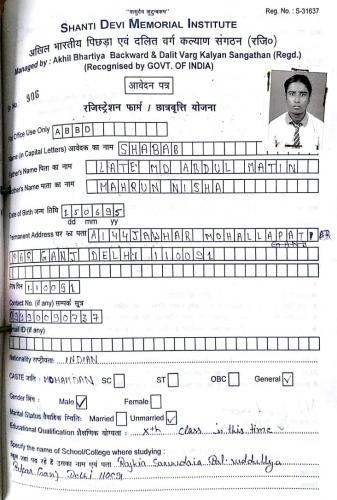 "वसुधैव कुटुम्बकम्"
Reg. No. : S-31637
SHANTI DEVI MEMORIAL INSTITUTE
अखिल भारतीय पिछड़ा एवं दलित वर्ग कल्याण संगठन (रजि०)
Managed by : Akhil Bhartiya Backward & Dalit Varg Kalyan Sangathan (Regd.)
(Recognised by GOVT. OF INDIA)
आवेदन पत्र
Sr No. 906
रजिस्ट्रेशन फार्म / छात्रवृत्ति योजना
For Office Use Only ABBD
Name (in Capital Letters) आवेदक का नाम SHABAB
Father's Name पिता का नाम LATE MD ABDUL MATIN
Father's Name माता का नाम MAHRUN NISHA
Date of Birth जन्म तिथि 150695
dd mm yy
Permanent Address घर का पता A144 JAWHAR MOHALLA PATPAR
GANJ DELHI 110091
PIN पिन 110091
Contact No. (if any) सम्पर्क सूत्र
Email ID (if any)
Nationality राष्ट्रीयता: INDIAN
CASTE जाति : MOHAMDAN SC ST OBC General ✓
Gender लिंग : Male ✓ Female
Marital Status वैवाहिक स्थिति: Married Unmarried ✓
Educational Qualification शैक्षणिक योग्यता : xth class in this time
Specify the name of School/College where studying :
स्कूल जहां पढ़ रहे हैं उसका नाम एवं पता Rajkia Sarvodaia Bal
Delhi 110091